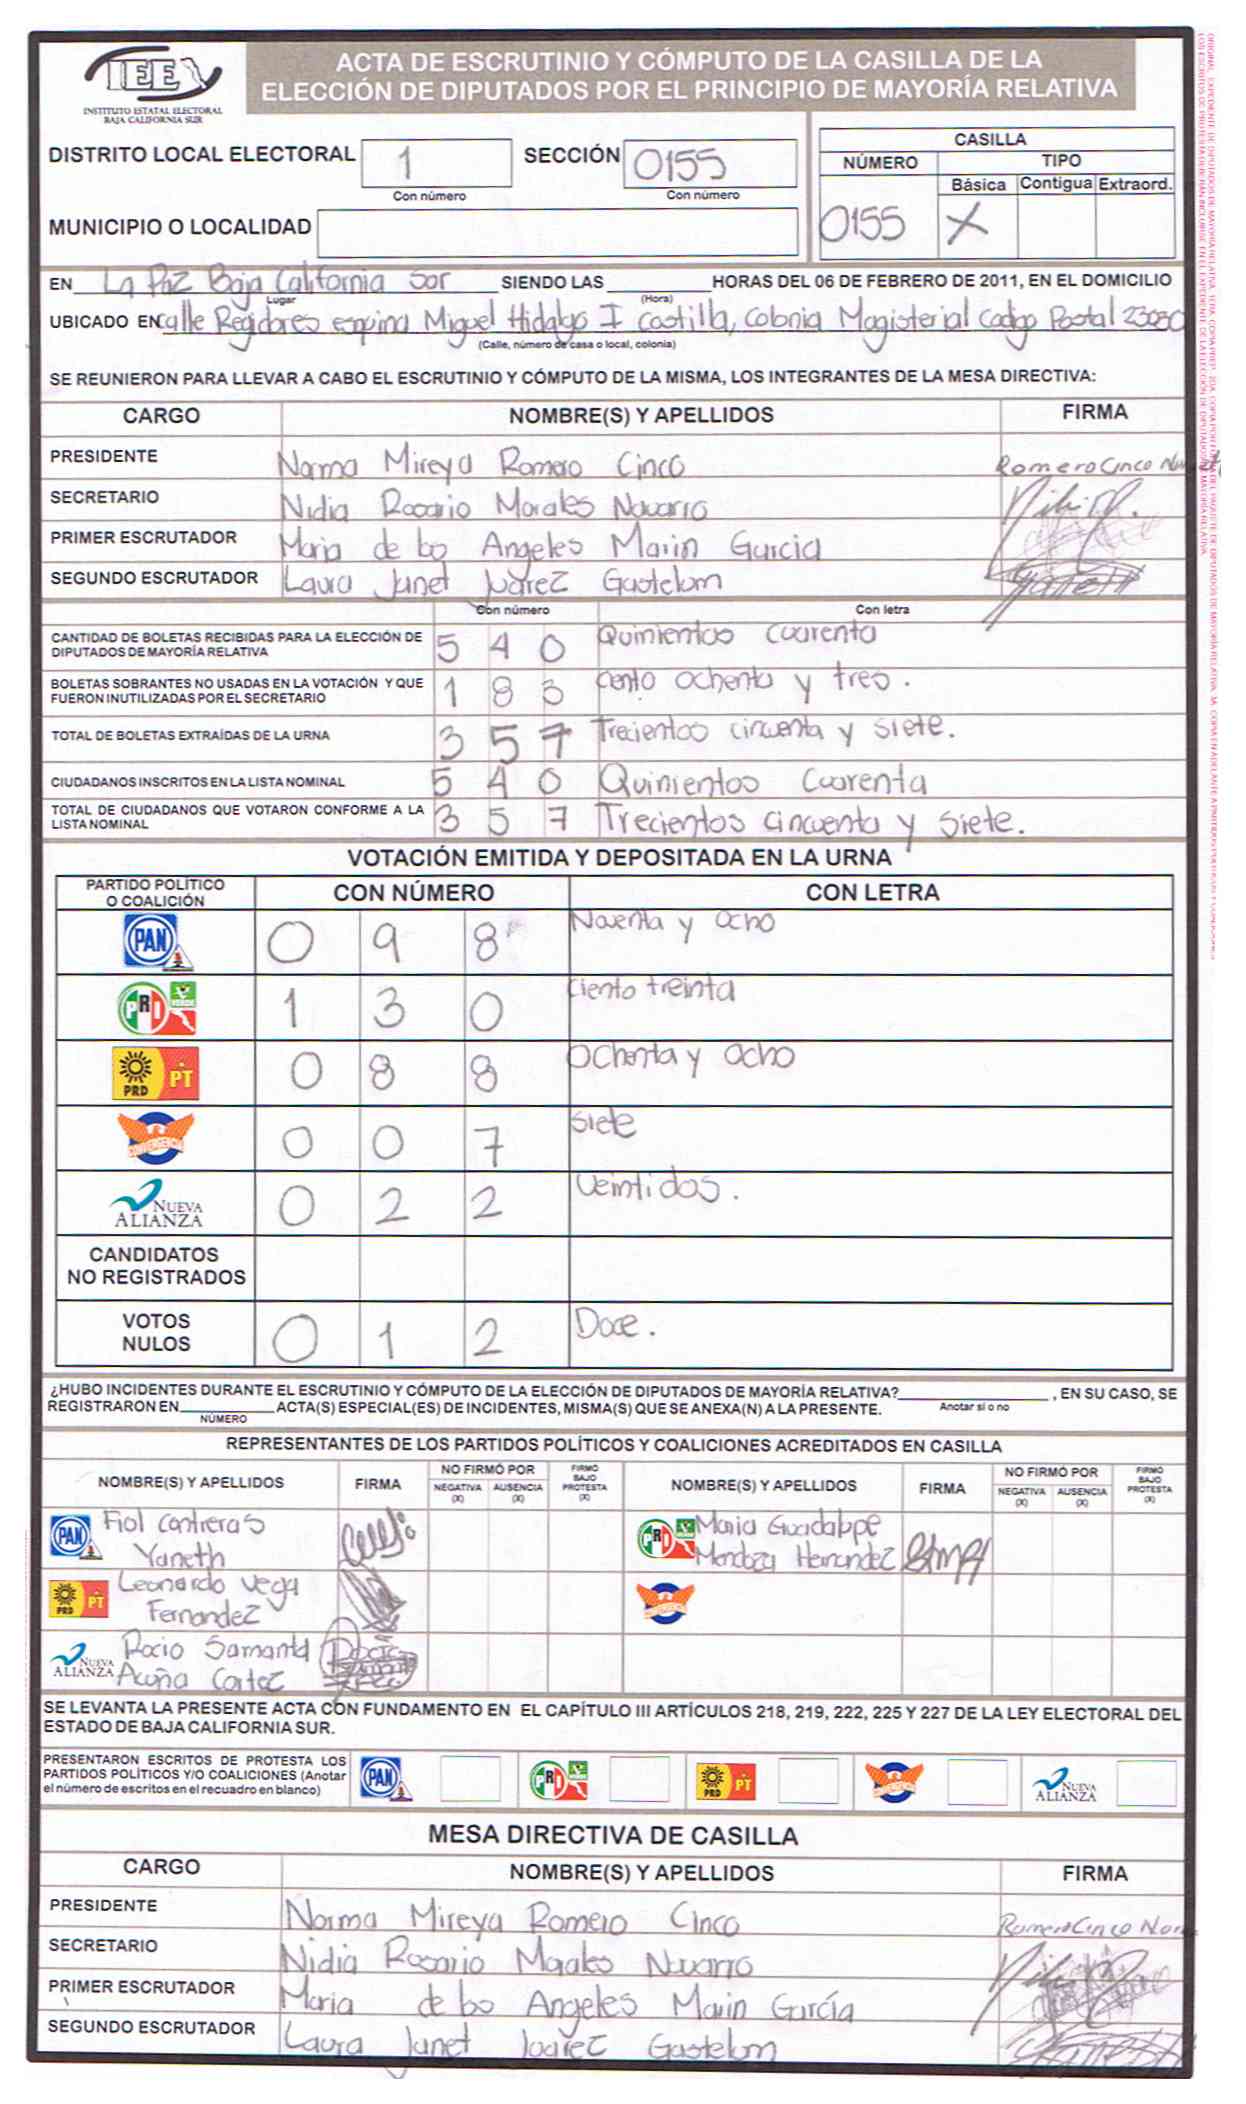 IEE
INSTITUTO ESTATAL ELECTORAL
BAJA CALIFORNIA SUR
ACTA DE ESCRUTINIO Y CÓMPUTO DE LA CASILLA DE LA
ELECCIÓN DE DIPUTADOS POR EL PRINCIPIO DE MAYORÍA RELATIVA
DISTRITO LOCAL ELECTORAL 1 SECCIÓN 0155
Con número Con número
MUNICIPIO O LOCALIDAD
CASILLA
NÚMERO TIPO
Básica Contigua Extraord.
0155 X
EN La Paz Baja California Sor SIENDO LAS HORAS DEL 06 DE FEBRERO DE 2011, EN EL DOMICILIO
Lugar (Hora)
UBICADO EN calle Regidores esquina Miguel Hidalgo I Costilla, Colonia Magisterial Codigo Postal 23030
(Calle, número de casa o local, colonia)
SE REUNIERON PARA LLEVAR A CABO EL ESCRUTINIO Y CÓMPUTO DE LA MISMA, LOS INTEGRANTES DE LA MESA DIRECTIVA:
CARGO NOMBRE(S) Y APELLIDOS FIRMA
PRESIDENTE Norma Mireya Romero Cinco Romero Cinco
SECRETARIO Nidia Rosario Morales Navarro
PRIMER ESCRUTADOR Maria de los Angeles Marin Garcia
SEGUNDO ESCRUTADOR Laura Janet Juarez Gastelum
Con número Con letra
CANTIDAD DE BOLETAS RECIBIDAS PARA LA ELECCIÓN DE
DIPUTADOS DE MAYORÍA RELATIVA 5 4 0 Quinientos Cuarenta
BOLETAS SOBRANTES NO USADAS EN LA VOTACIÓN Y QUE
FUERON INUTILIZADAS POR EL SECRETARIO 1 8 3 ciento ochenta y tres.
TOTAL DE BOLETAS EXTRAÍDAS DE LA URNA 3 5 7 Trecientos cincuenta y siete.
CIUDADANOS INSCRITOS EN LA LISTA NOMINAL 5 4 0 Quinientos Cuarenta
TOTAL DE CIUDADANOS QUE VOTARON CONFORME A LA
LISTA NOMINAL 3 5 7 Trecientos cincuenta y siete.
VOTACIÓN EMITIDA Y DEPOSITADA EN LA URNA
PARTIDO POLÍTICO
O COALICIÓN CON NÚMERO CON LETRA
PAN 0 9 8 Noventa y ocho
PRI VERDE 1 3 0 ciento treinta
PRD PT 0 8 8 Ochenta y ocho
CONVERGENCIA 0 0 7 siete
NUEVA
ALIANZA 0 2 2 veintidos.
CANDIDATOS
NO REGISTRADOS
VOTOS
NULOS 0 1 2 Doce.
¿HUBO INCIDENTES DURANTE EL ESCRUTINIO Y CÓMPUTO DE LA ELECCIÓN DE DIPUTADOS DE MAYORÍA RELATIVA? , EN SU CASO, SE
REGISTRARON EN ACTA(S) ESPECIAL(ES) DE INCIDENTES, MISMA(S) QUE SE ANEXA(N) A LA PRESENTE. Anotar sí o no
NÚMERO
REPRESENTANTES DE LOS PARTIDOS POLÍTICOS Y COALICIONES ACREDITADOS EN CASILLA
NOMBRE(S) Y APELLIDOS FIRMA NO FIRMÓ POR NEGATIVA (X) AUSENCIA (X) FIRMÓ BAJO PROTESTA (X) NOMBRE(S) Y APELLIDOS FIRMA NO FIRMÓ POR NEGATIVA (X) AUSENCIA (X) FIRMÓ BAJO PROTESTA (X)
PAN Fiol Contreras
Yaneth
PRI VERDE Maria Guadalupe
Mendoza Hernandez
PRD PT Leonardo Vega
Fernandez
CONVERGENCIA
NUEVA ALIANZA Rocio Samanta
Acuña Cortez
SE LEVANTA LA PRESENTE ACTA CON FUNDAMENTO EN EL CAPÍTULO III ARTÍCULOS 218, 219, 222, 225 Y 227 DE LA LEY ELECTORAL DEL
ESTADO DE BAJA CALIFORNIA SUR.
PRESENTARON ESCRITOS DE PROTESTA LOS
PARTIDOS POLÍTICOS Y/O COALICIONES (Anotar
el número de escritos en el recuadro en blanco)
PAN PRI VERDE PRD PT CONVERGENCIA NUEVA ALIANZA
MESA DIRECTIVA DE CASILLA
CARGO NOMBRE(S) Y APELLIDOS FIRMA
PRESIDENTE Norma Mireya Romero Cinco Romero Cinco Norma
SECRETARIO Nidia Rosario Morales Navarro
PRIMER ESCRUTADOR Maria de los Angeles Marin García
SEGUNDO ESCRUTADOR Laura Janet Juarez Gastelum